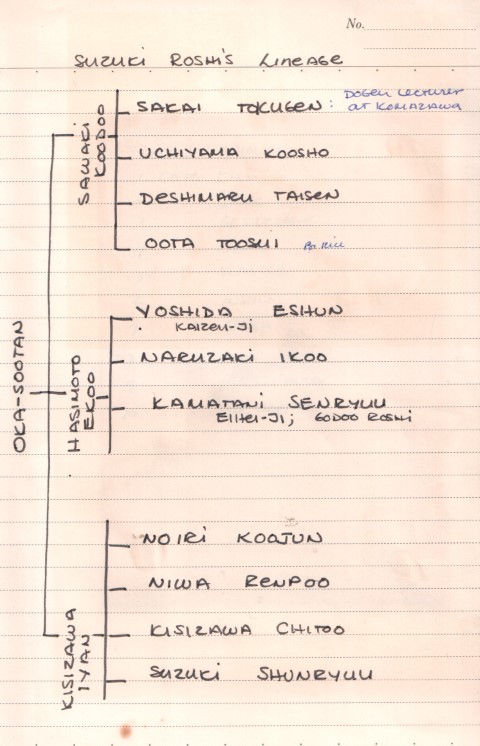 No.
SUZUKI ROSHI'S LINEAGE
OKA-SOOTAN
SAWAKI KOODOO
SAKAI TOKUGEN: DOGEN LECTURER
AT KOMAZAWA
UCHIYAMA KOOSHO
DESHIMARU TAISEN
OOTA TOOSHI
HASIMOTO EKOO
YOSHIDA ESHUN
KAIZEN-JI
NARUZAKI IKOO
KAMATANI SENRYUU
EIHEI-JI; GODOO ROSHI
KISIZAWA IYAN
NOIRI KOOJUN
NIWA RENPOO
KISIZAWA CHITOO
SUZUKI SHUNRYUU